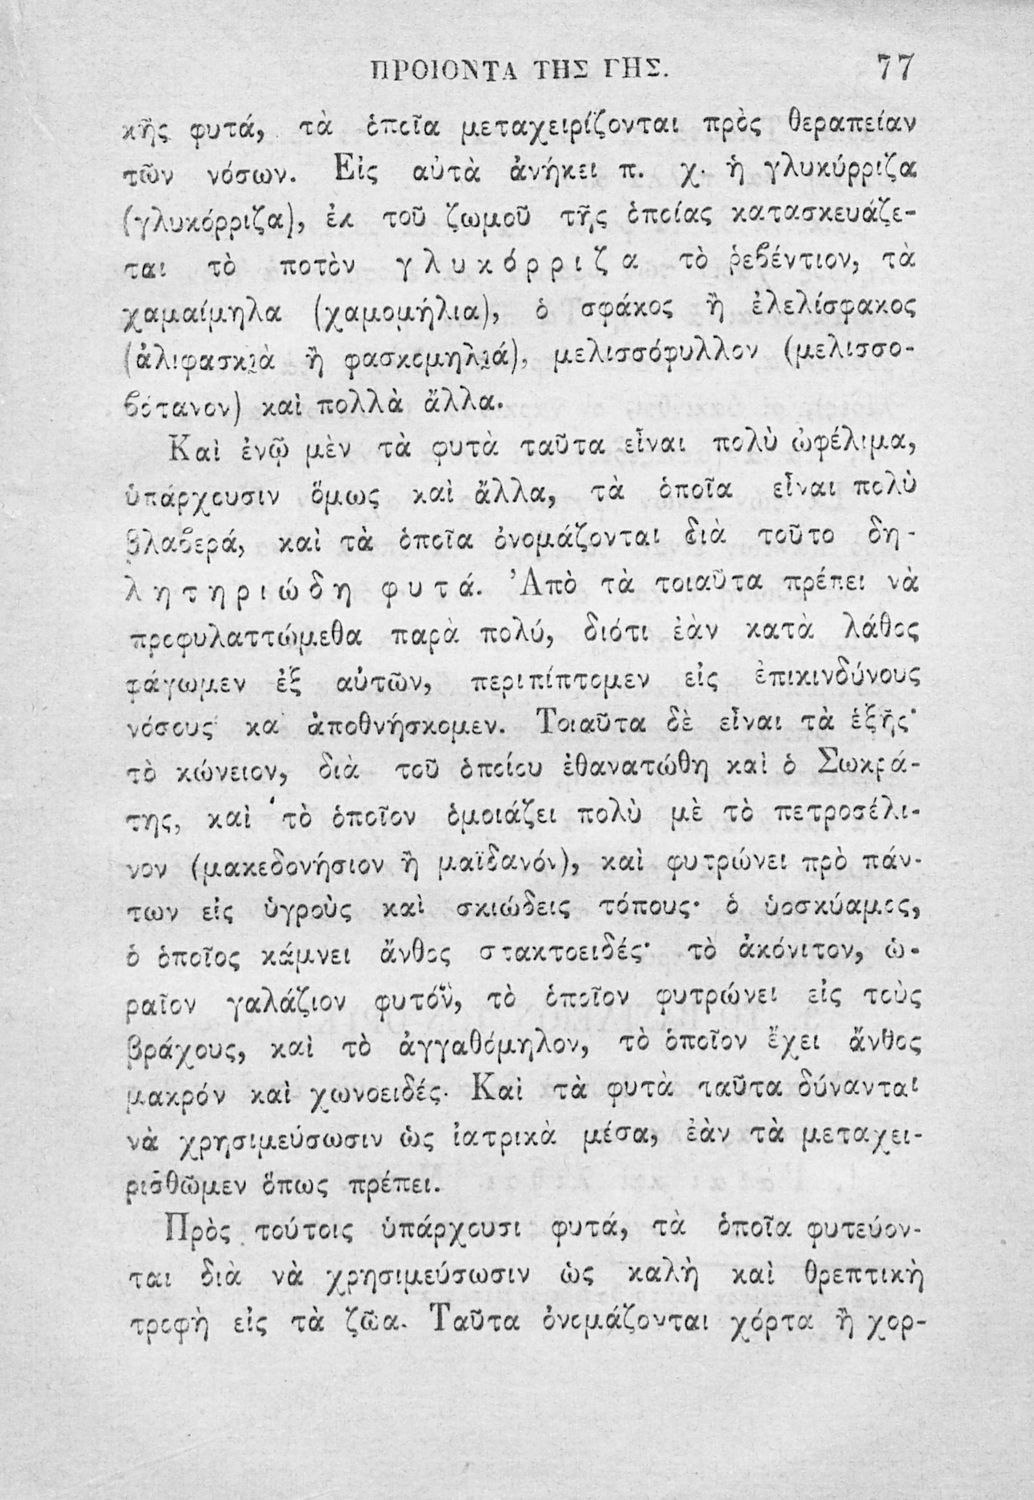 ΠΡΟΙΟΝΤΑ ΤΗΣ ΓΗΣ. 77
κῆς φυτά, τὰ ὁποῖα μεταχειρίζονται πρὸς θεραπείαν
τῶν νόσων. Εἰς αὐτὰ ἀνήκει π. χ. ἡ γλυκύρριζα
(γλυκόρριζα), ἐκ τοῦ ζωμοῦ τῆς ὁποίας κατασκευάζε-
ται τὸ ποτὸν γλυκόρριζα τὸ ῥεβέντιον, τὰ
χαμαίμηλα (χαμομήλια), ὁ σφάκος ἢ ἐλελίσφακος
(ἀλιφασκιὰ ἢ φασκομηλιά), μελισσόφυλλον (μελισσο-
βότανον) καὶ πολλὰ ἄλλα.
Καὶ ἐνῷ μὲν τὰ φυτὰ ταῦτα εἶναι πολὺ ὠφέλιμα,
ὑπάρχουσιν ὅμως καὶ ἄλλα, τὰ ὁποῖα εἶναι πολὺ
βλαβερά, καὶ τὰ ὁποῖα ὀνομάζονται διὰ τοῦτο δη-
λητηριώδη φυτά. Ἀπὸ τὰ τοιαῦτα πρέπει νὰ
προφυλαττώμεθα παρὰ πολύ, διότι ἐὰν κατὰ λάθος
φάγωμεν ἐξ αὐτῶν, περιπίπτομεν εἰς ἐπικινδύνους
νόσους κα ἀποθνήσκομεν. Τοιαῦτα δὲ εἶναι τὰ ἑξῆς·
τὸ κώνειον, διὰ τοῦ ὁποίου ἐθανατώθη καὶ ὁ Σωκρά-
της, καὶ τὸ ὁποῖον ὁμοιάζει πολὺ μὲ τὸ πετροσέλι-
νον (μακεδονήσιον ἢ μαϊδανόν), καὶ φυτρώνει πρὸ πάν-
των εἰς ὑγροὺς καὶ σκιώδεις τόπους· ὁ ὑοσκύαμος,
ὁ ὁποῖος κάμνει ἄνθος στακτοειδές· τὸ ἀκόνιτον, ὡ-
ραῖον γαλάζιον φυτόν, τὸ ὁποῖον φυτρώνει εἰς τοὺς
βράχους, καὶ τὸ ἀγγαθόμηλον, τὸ ὁποῖον ἔχει ἄνθος
μακρόν καὶ χωνοειδές. Καὶ τὰ φυτὰ ταῦτα δύνανται
νὰ χρησιμεύσωσιν ὡς ἰατρικὰ μέσα, ἐὰν τὰ μεταχει-
ρισθῶμεν ὅπως πρέπει.
Πρὸς τούτοις ὑπάρχουσι φυτά, τὰ ὁποῖα φυτεύον-
ται διὰ νὰ χρησιμεύσωσιν ὡς καλὴ καὶ θρεπτικὴ
τροφὴ εἰς τὰ ζῶα. Ταῦτα ὀνομάζονται χόρτα ἢ χορ-